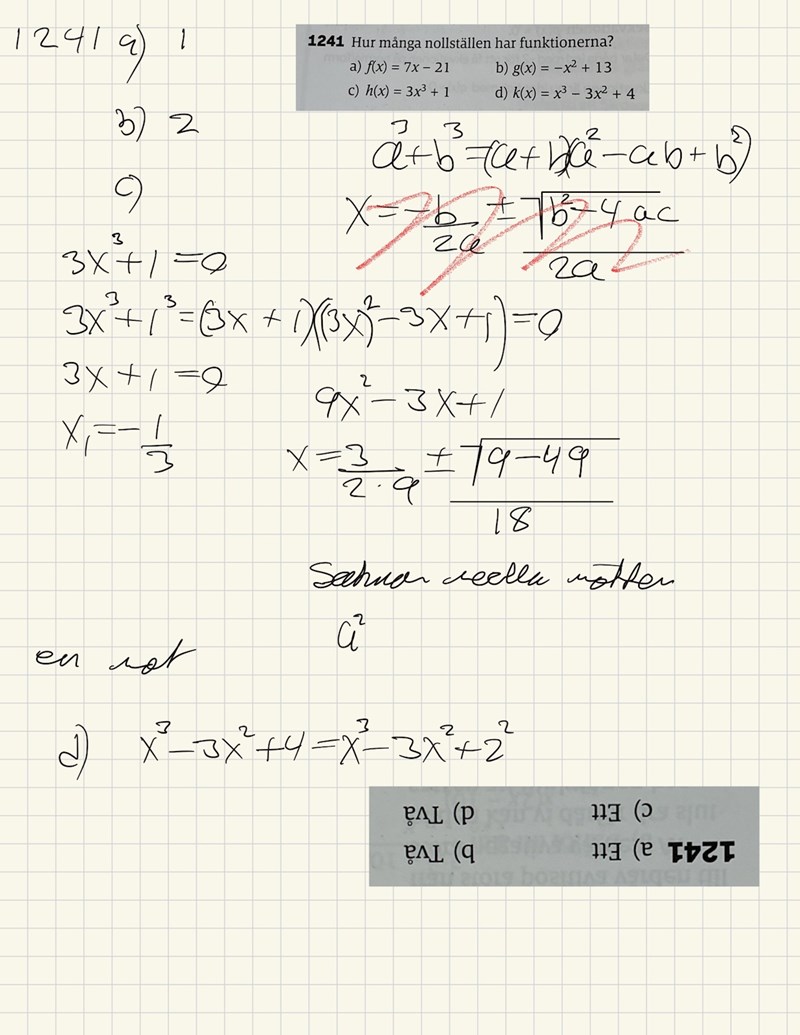 1241 a) 1
1241 Hur många nollställen har funktionerna?
a) f(x) = 7x – 21 b) g(x) = –x² + 13
c) h(x) = 3x³ + 1 d) k(x) = x³ – 3x² + 4
b) 2
a³+b³=(a+b)(a²-ab+b²)
c)
x = -b/2a ± √(b²-4ac)/2a
3x³+1=0
3x³+1³=(3x+1)((3x)²-3x+1)=0
3x+1=0
9x²-3x+1
x₁=-1/3
x=3/(2·9) ± √(9-49)/18
Saknar reella rötter
a²
en rot
d) x³-3x²+4=x³-3x²+2²
1241 a) Ett b) Två
c) Ett d) Två